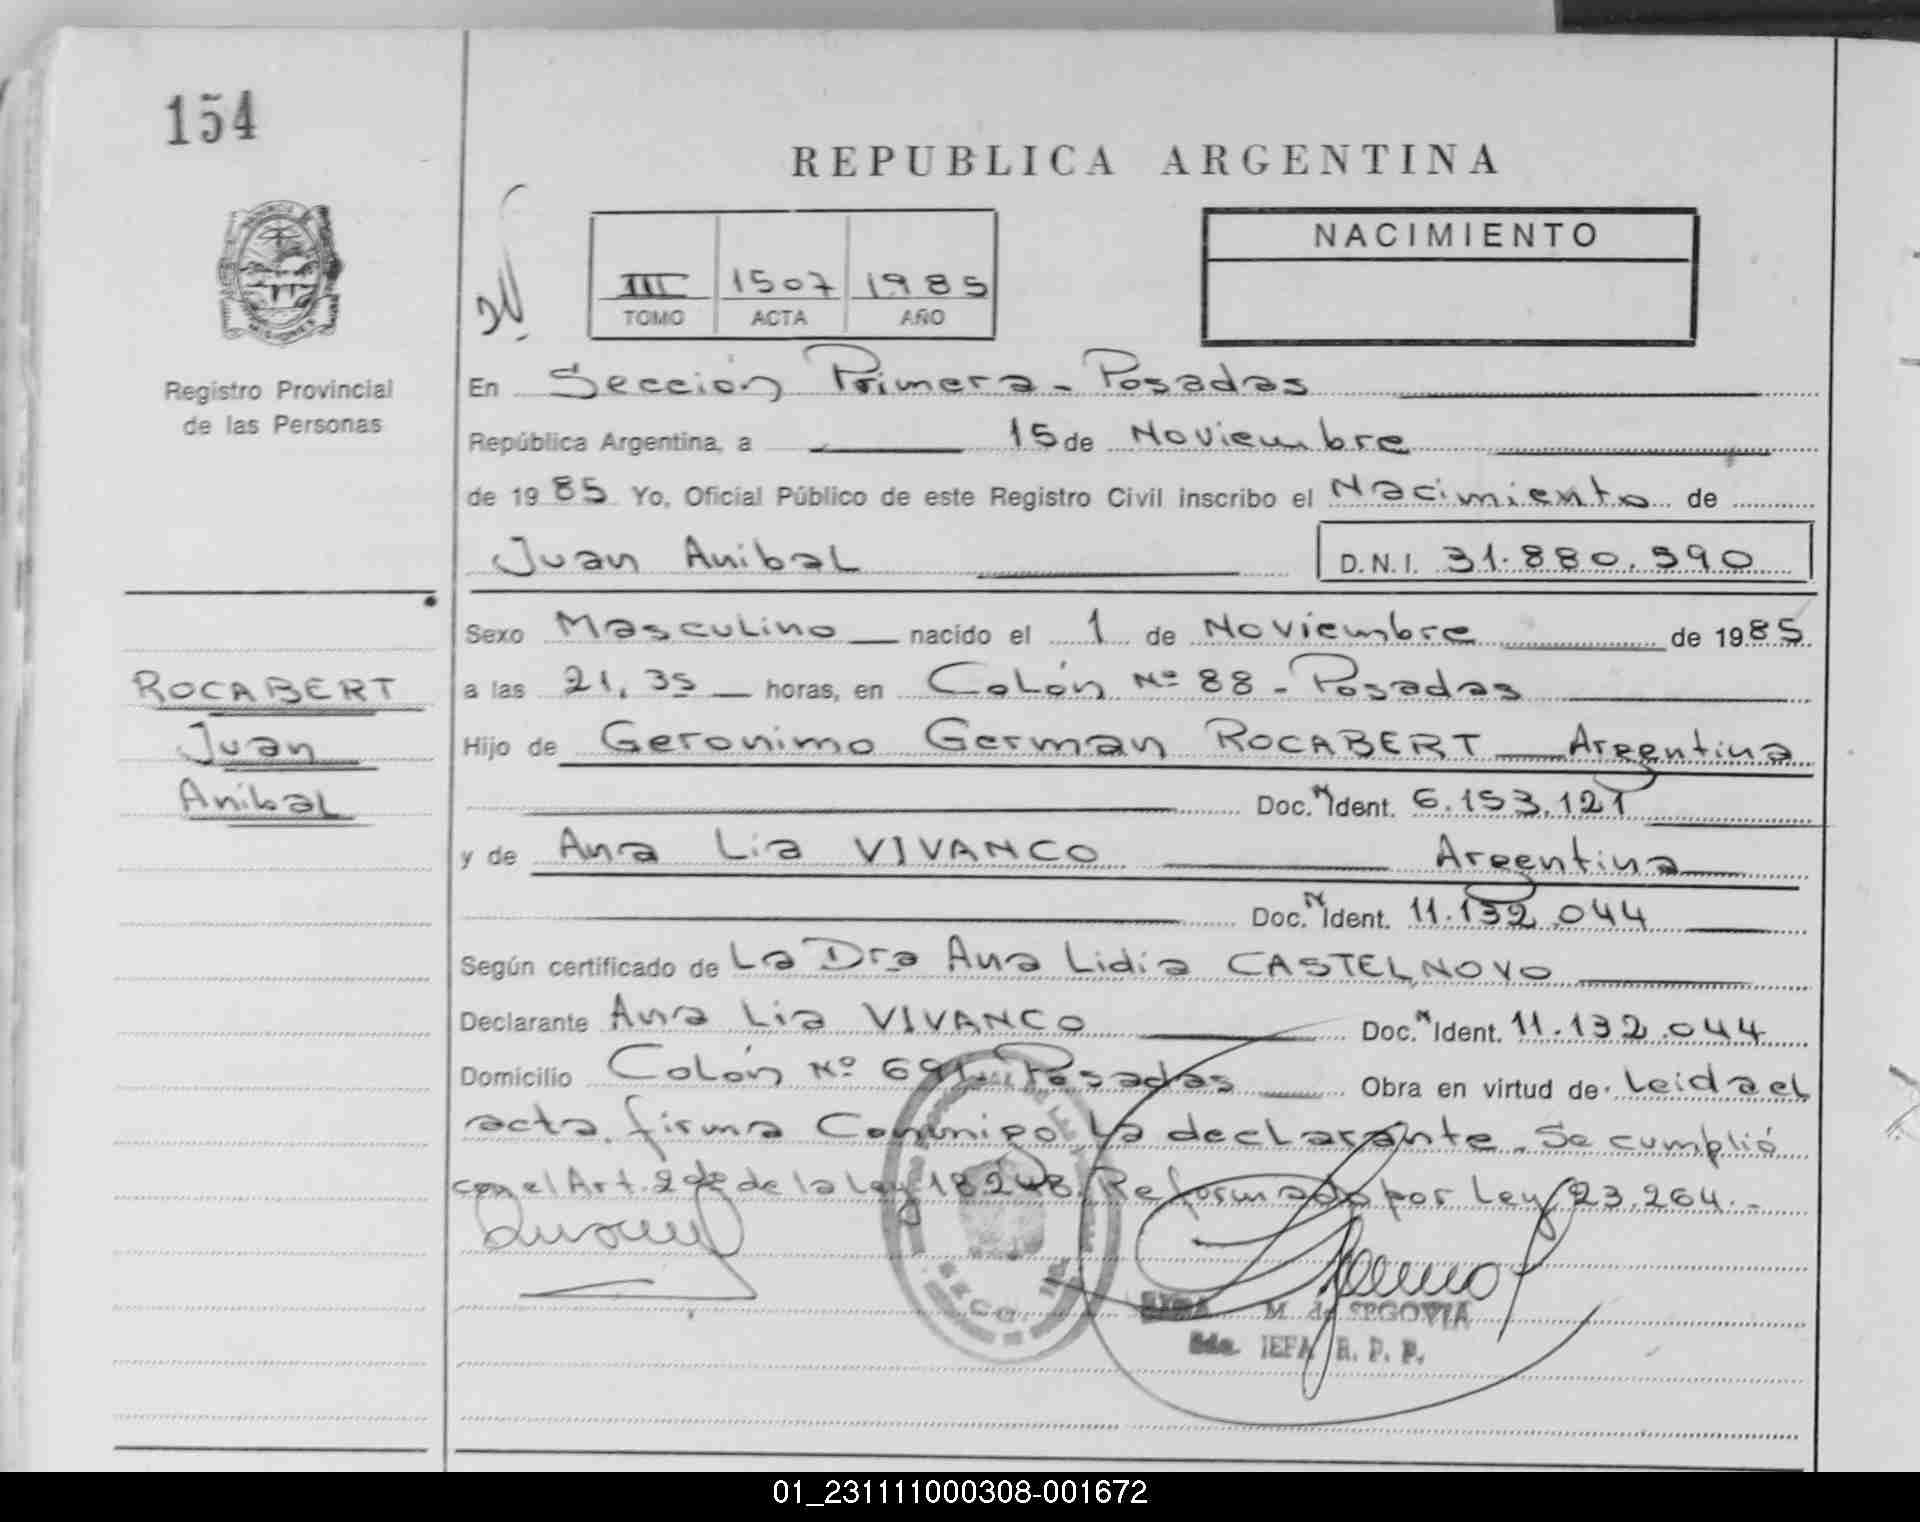 154
REPUBLICA ARGENTINA
NACIMIENTO
III 1507 1985
TOMO ACTA AÑO
Registro Provincial
de las Personas
En Sección Primera - Posadas
República Argentina, a 15 de Noviembre
de 1985 Yo, Oficial Público de este Registro Civil inscribo el Nacimiento de
Juan Anibal D.N.I. 31.880.590
Sexo Masculino nacido el 1 de Noviembre de 1985
ROCABERT
Juan
Anibal
a las 21,35 horas, en Colón Nº 88 - Posadas
Hijo de Geronimo German ROCABERT Argentina
Doc. N Ident. 6.153.121
y de Ana Lia VIVANCO Argentina
Doc. N Ident. 11.132.044
Según certificado de La Dra Ana Lidia CASTELNOVO
Declarante Ana Lia VIVANCO Doc. N Ident. 11.132.044
Domicilio Colón Nº 691 - Posadas Obra en virtud de Leida el
acta, firma Conmigo La declarante. Se cumplió
con el Art. 2 de la Ley 18.248 Reformado por Ley 23.264.-
M. de SEGOVIA
JEFA R. P. P.
01_231111000308-001672